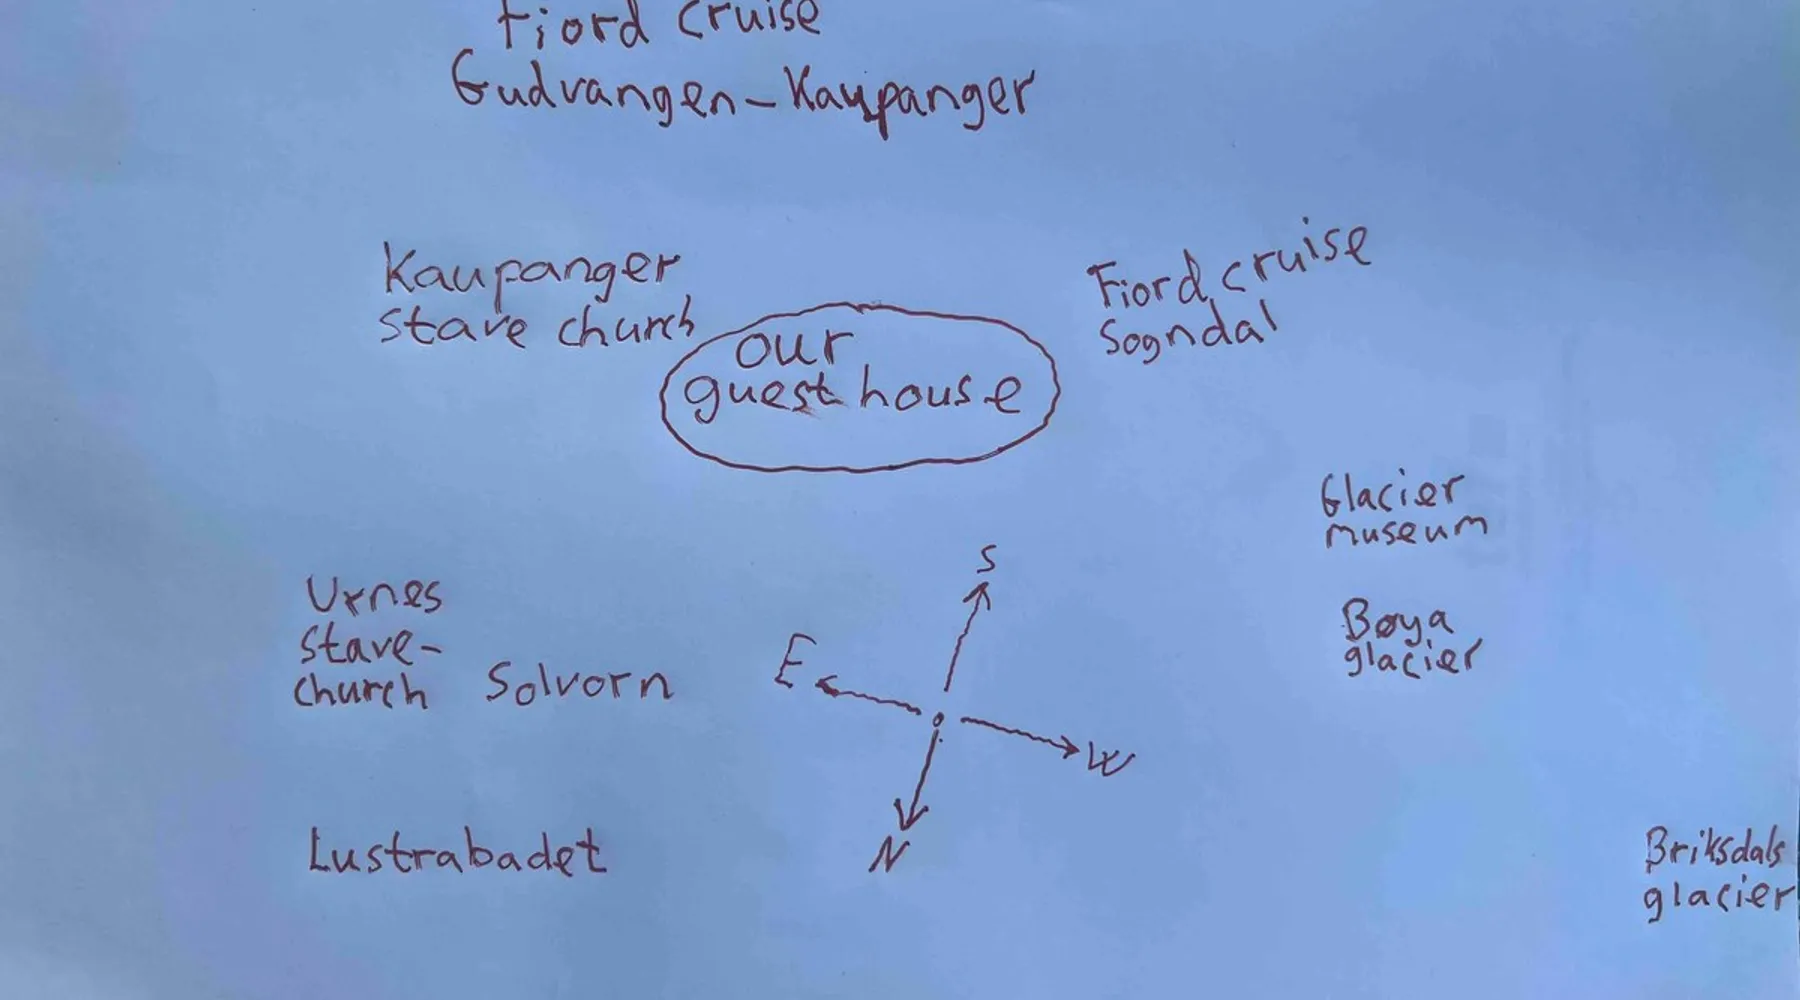 Fiord cruise
Gudvangen - Kaupanger
Kaupanger
stave church
our
guest house
Fiord cruise
Sogndal
Glacier
museum
Urnes
stave-
church
Solvorn
S
E
W
N
Bøya
glacier
Lustrabadet
Briksdals
glacier